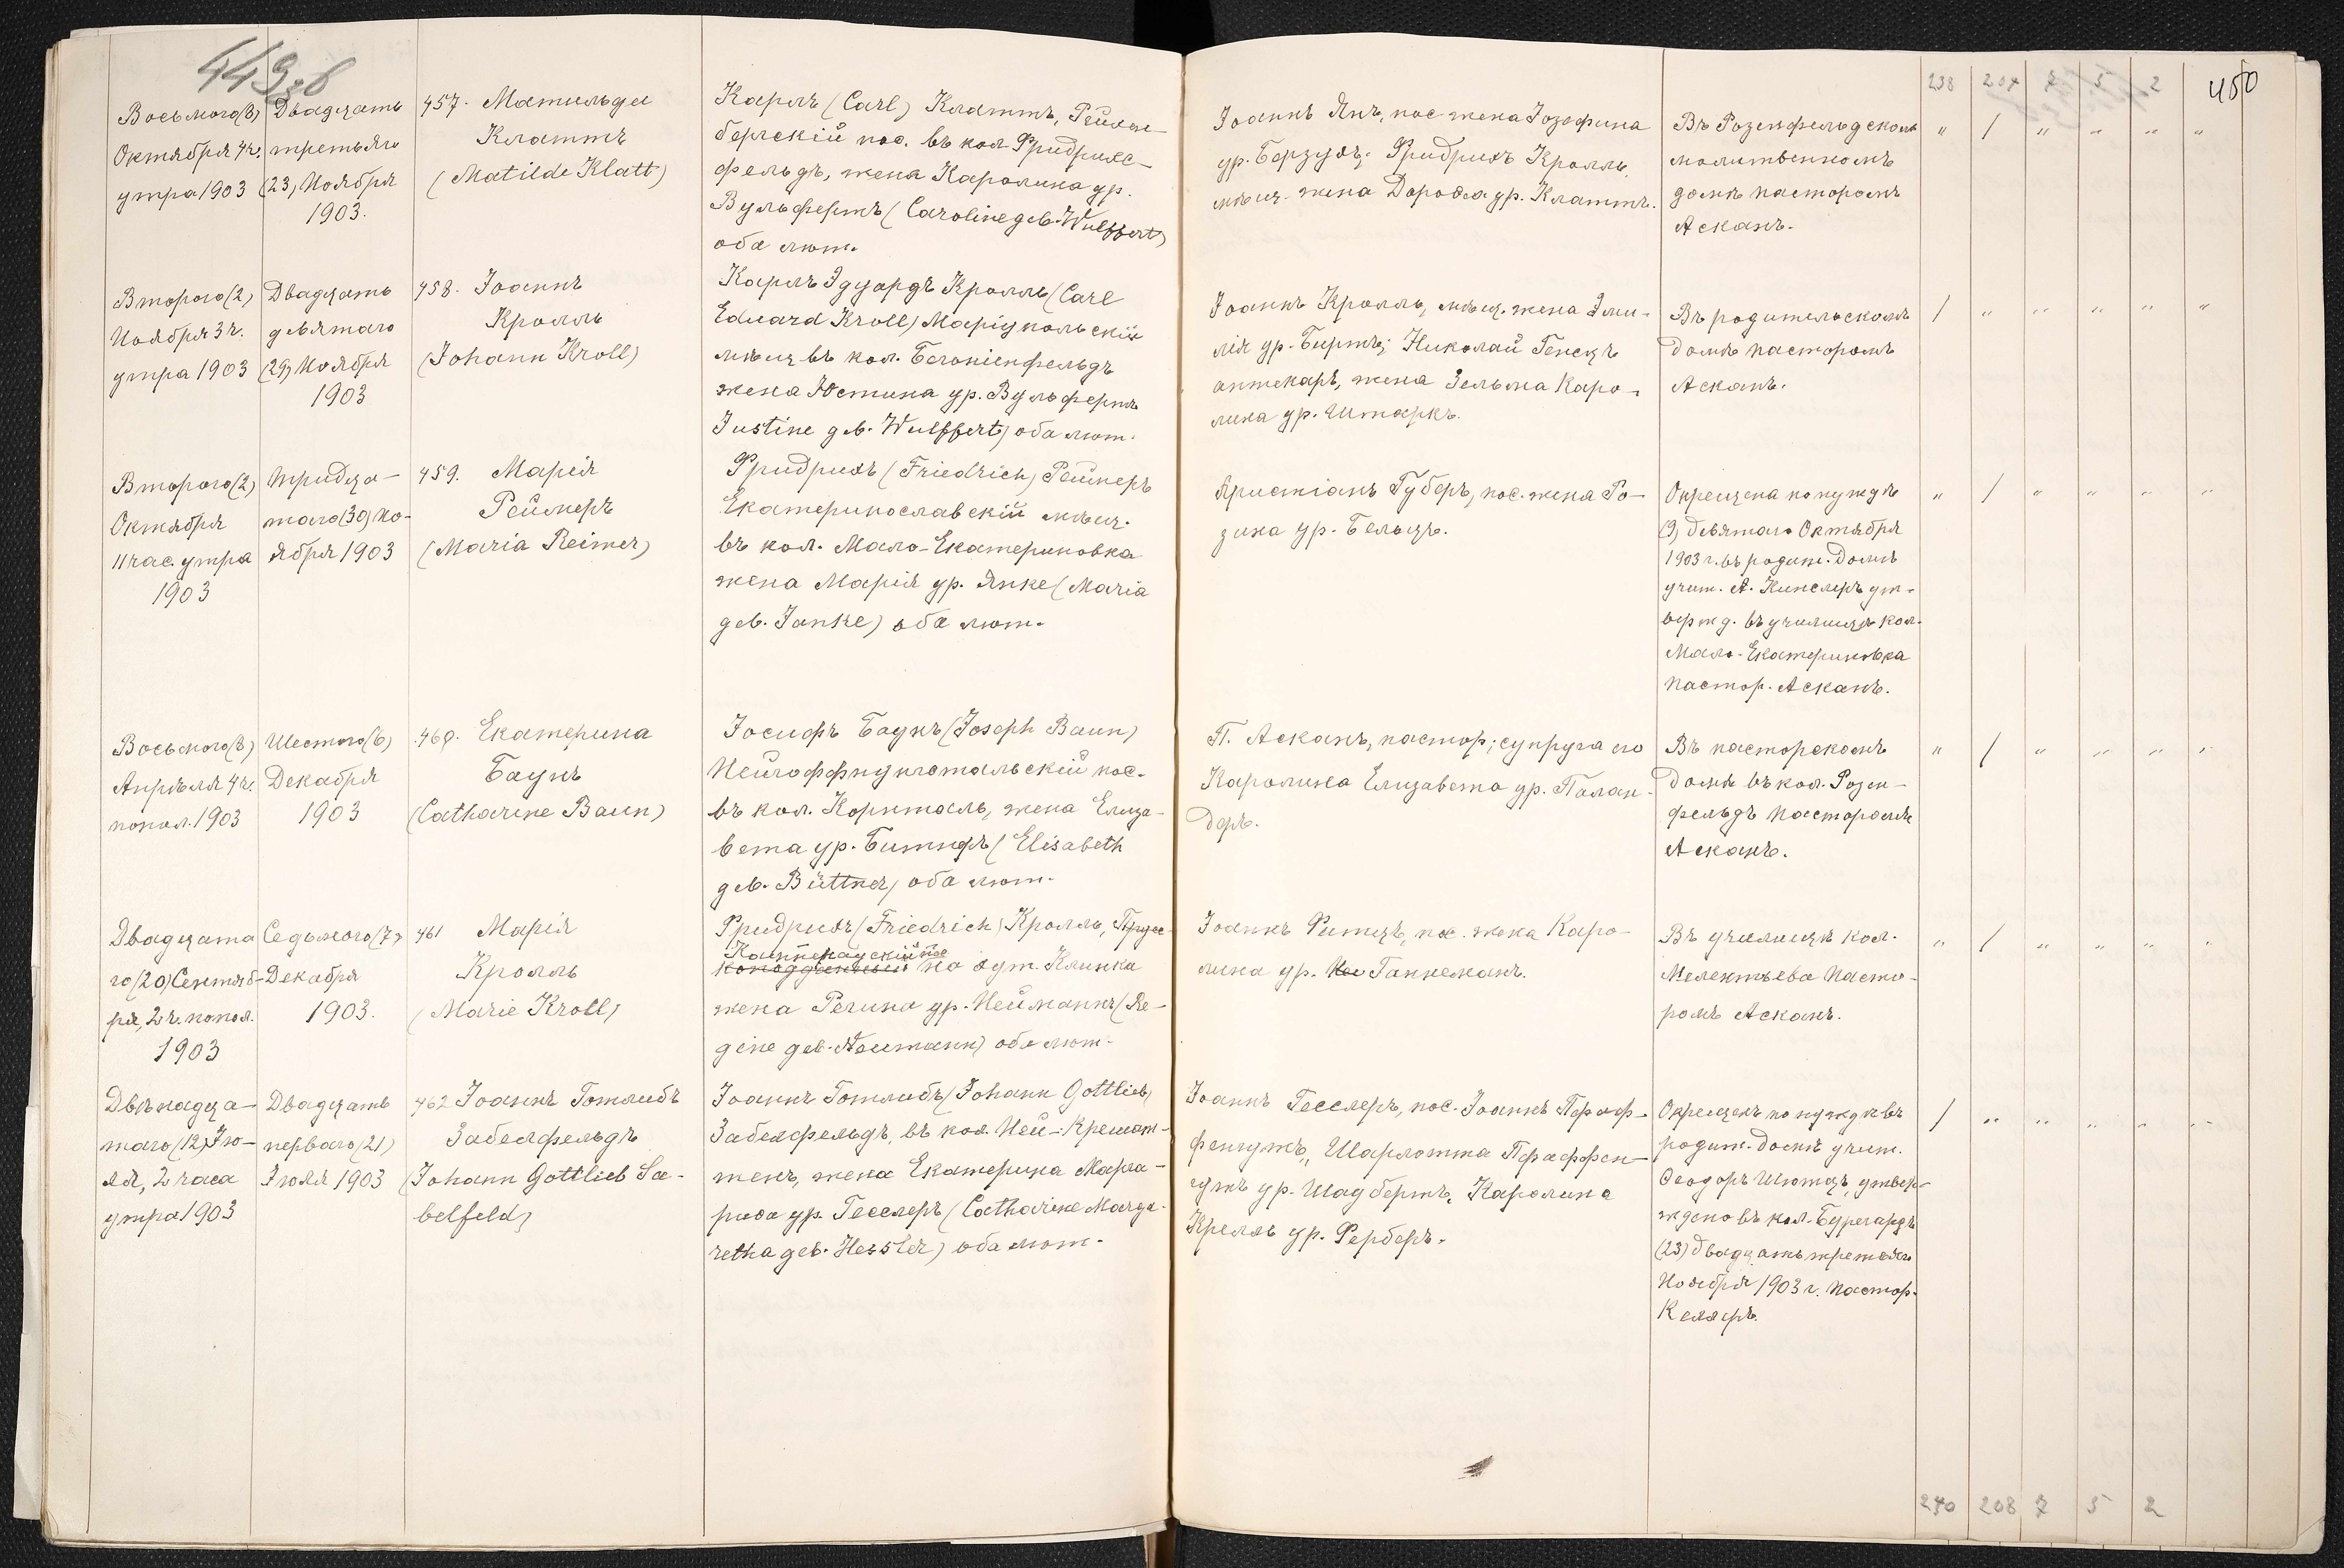 449 об
450
238 204 7 5 2
Восьмого (8)
Октября 4 ч.
утра 1903
Двадцать
третьяго
(23) Ноября
1903.
457. Матильда
Клаттъ
(Matilde Klatt)
Карлъ (Carl) Клаттъ, Рейхен-
бергскій пос. въ кол. Фридрихс-
фельдъ, жена Каролина ур.
Вульфертъ (Caroline geb. Wulffert)
оба лют.
Іоаннъ Янъ, пос. жена Іозефина
ур. Борзухъ; Фридрихъ Кролль,
мѣщ. жена Доротеа ур. Клаттъ.
Въ Розенфельдскомъ
молитвенномъ
домѣ пасторомъ
Асканъ.
" / " " " "
Второго (2)
Ноября 3 ч.
утра 1903
Двадцать
девятаго
(29) Ноября
1903
458. Іоаннъ
Кролль
(Johann Kroll)
Карлъ Эдуардъ Кролль (Carl
Eduard Kroll) Маріупольскій
мѣщ. въ кол. Бегоніенфельдъ
жена Юстина ур. Вульфертъ
Justine geb. Wulffert) оба лют.
Іоаннъ Кролль, мѣщ. жена Эми-
лія ур. Биртъ; Николай Генсцъ
аптекарь, жена Зельма Каро-
лина ур. Штаркъ.
Въ родительскомъ
домѣ пасторомъ
Асканъ.
/ " " " " "
Второго (2)
Октября
11 час. утра
1903
Тридца-
таго (30) Но-
ября 1903
459. Марія
Реймеръ
(Maria Reimer)
Фридрихъ (Friedrich) Реймеръ
Екатеринославскій мѣщ.
въ кол. Мало-Екатериновка
жена Марія ур. Янке (Maria
geb. Janke) оба лют.
Христіанъ Губеръ, пос. жена Ро-
зина ур. Бельцъ.
Окрещена по нуждѣ
(9) девятаго Октября
1903 г. въ родит. домѣ
учит. А. Кинслеръ ут-
вержд. въ училищѣ кол.
Мало-Екатериновка
пастор. Асканъ.
" / " " " "
Восьмого (8)
Апрѣля 4 ч.
попол. 1903
Шестого (6)
Декабря
1903
460. Екатерина
Баунъ
(Catharine Baun)
Іосифъ Баунъ (Joseph Baun)
Нейгоффнунгстальскій пос.
въ кол. Корнталь, жена Елиза-
вета ур. Битнеръ (Elisabeth
geb. Büttner) оба лют.
П. Асканъ, пастор; супруга его
Каролина Елизавета ур. Полан-
деръ.
Въ пасторскомъ
домѣ въ кол. Розен-
фельдъ пасторомъ
Асканъ.
" / " " " "
Двадцата
го (20) Сентяб-
ря, 2 ч. попол.
1903
Седьмого (7)
Декабря
1903.
461 Марія
Кролль
(Marie Kroll)
Фридрихъ (Friedrich) Кролль, Прус-
Кампенауский пос
на хут. Клинка
жена Регина ур. Нейманнъ (Re-
gine geb. Neumann) оба лют.
Іоаннъ Ритцъ, пос. жена Каро-
лина ур. Ганнеманъ.
Въ училищѣ кол.
Мелентьева Пасто-
ромъ Асканъ.
" / " " " "
Двѣнадца-
таго (12) Ію-
ля, 2 часа
утра 1903
Двадцать
перваго (21)
Іюля 1903
462 Іоаннъ Готлибъ
Забелфельдъ
(Johann Gottlieb Sa-
belfeld)
Іоаннъ Готлибъ (Johann Gottlieb)
Забелфельдъ, въ кол. Ней-Крешат-
тенъ, жена Екатерина Марга-
рита ур. Гесслеръ (Catharine Marga-
retha geb. Hessler) оба лют.
Іоаннъ Гесслеръ, пос. Іоаннъ Пфаф-
фенгутъ, Шарлотта Пфаффен-
гутъ ур. Шадбертъ, Каролина
Крелль ур. Ферберъ.
Окрещенъ по нуждѣ въ
родит. домѣ учит.
Ѳеодоръ Шютцъ, утвер-
жденъ въ кол. Бурегардъ
(23) двадцать третьяго
Ноября 1903 г. пастор.
Келлеръ.
/ " " " " "
240 208 7 5 2